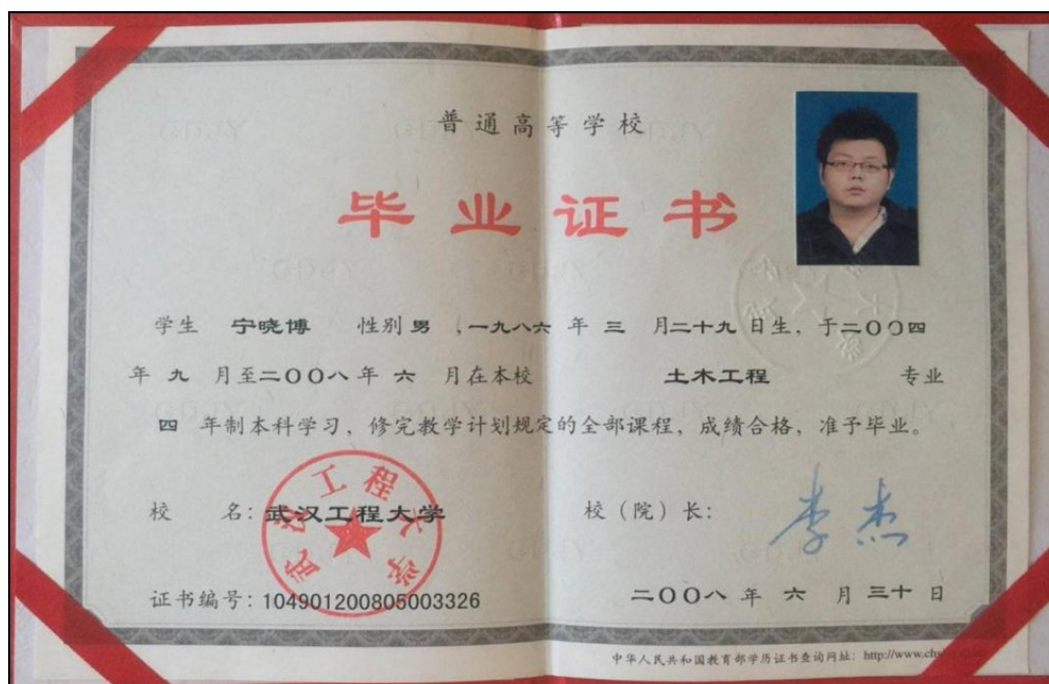 普通高等学校
毕业证书
学生 宁晓博 性别 男 ,一九八六 年 三 月二十九 日生, 于二〇〇四
年 九 月至二〇〇八 年 六 月在本校 土木工程 专业
四 年制本科学习, 修完教学计划规定的全部课程, 成绩合格, 准予毕业。
武汉工程大学
校 名: 武汉工程大学 校(院)长: 李杰
证书编号: 104901200805003326 二〇〇八 年 六 月 三十 日
中华人民共和国教育部学历证书查询网址: http://www.ch